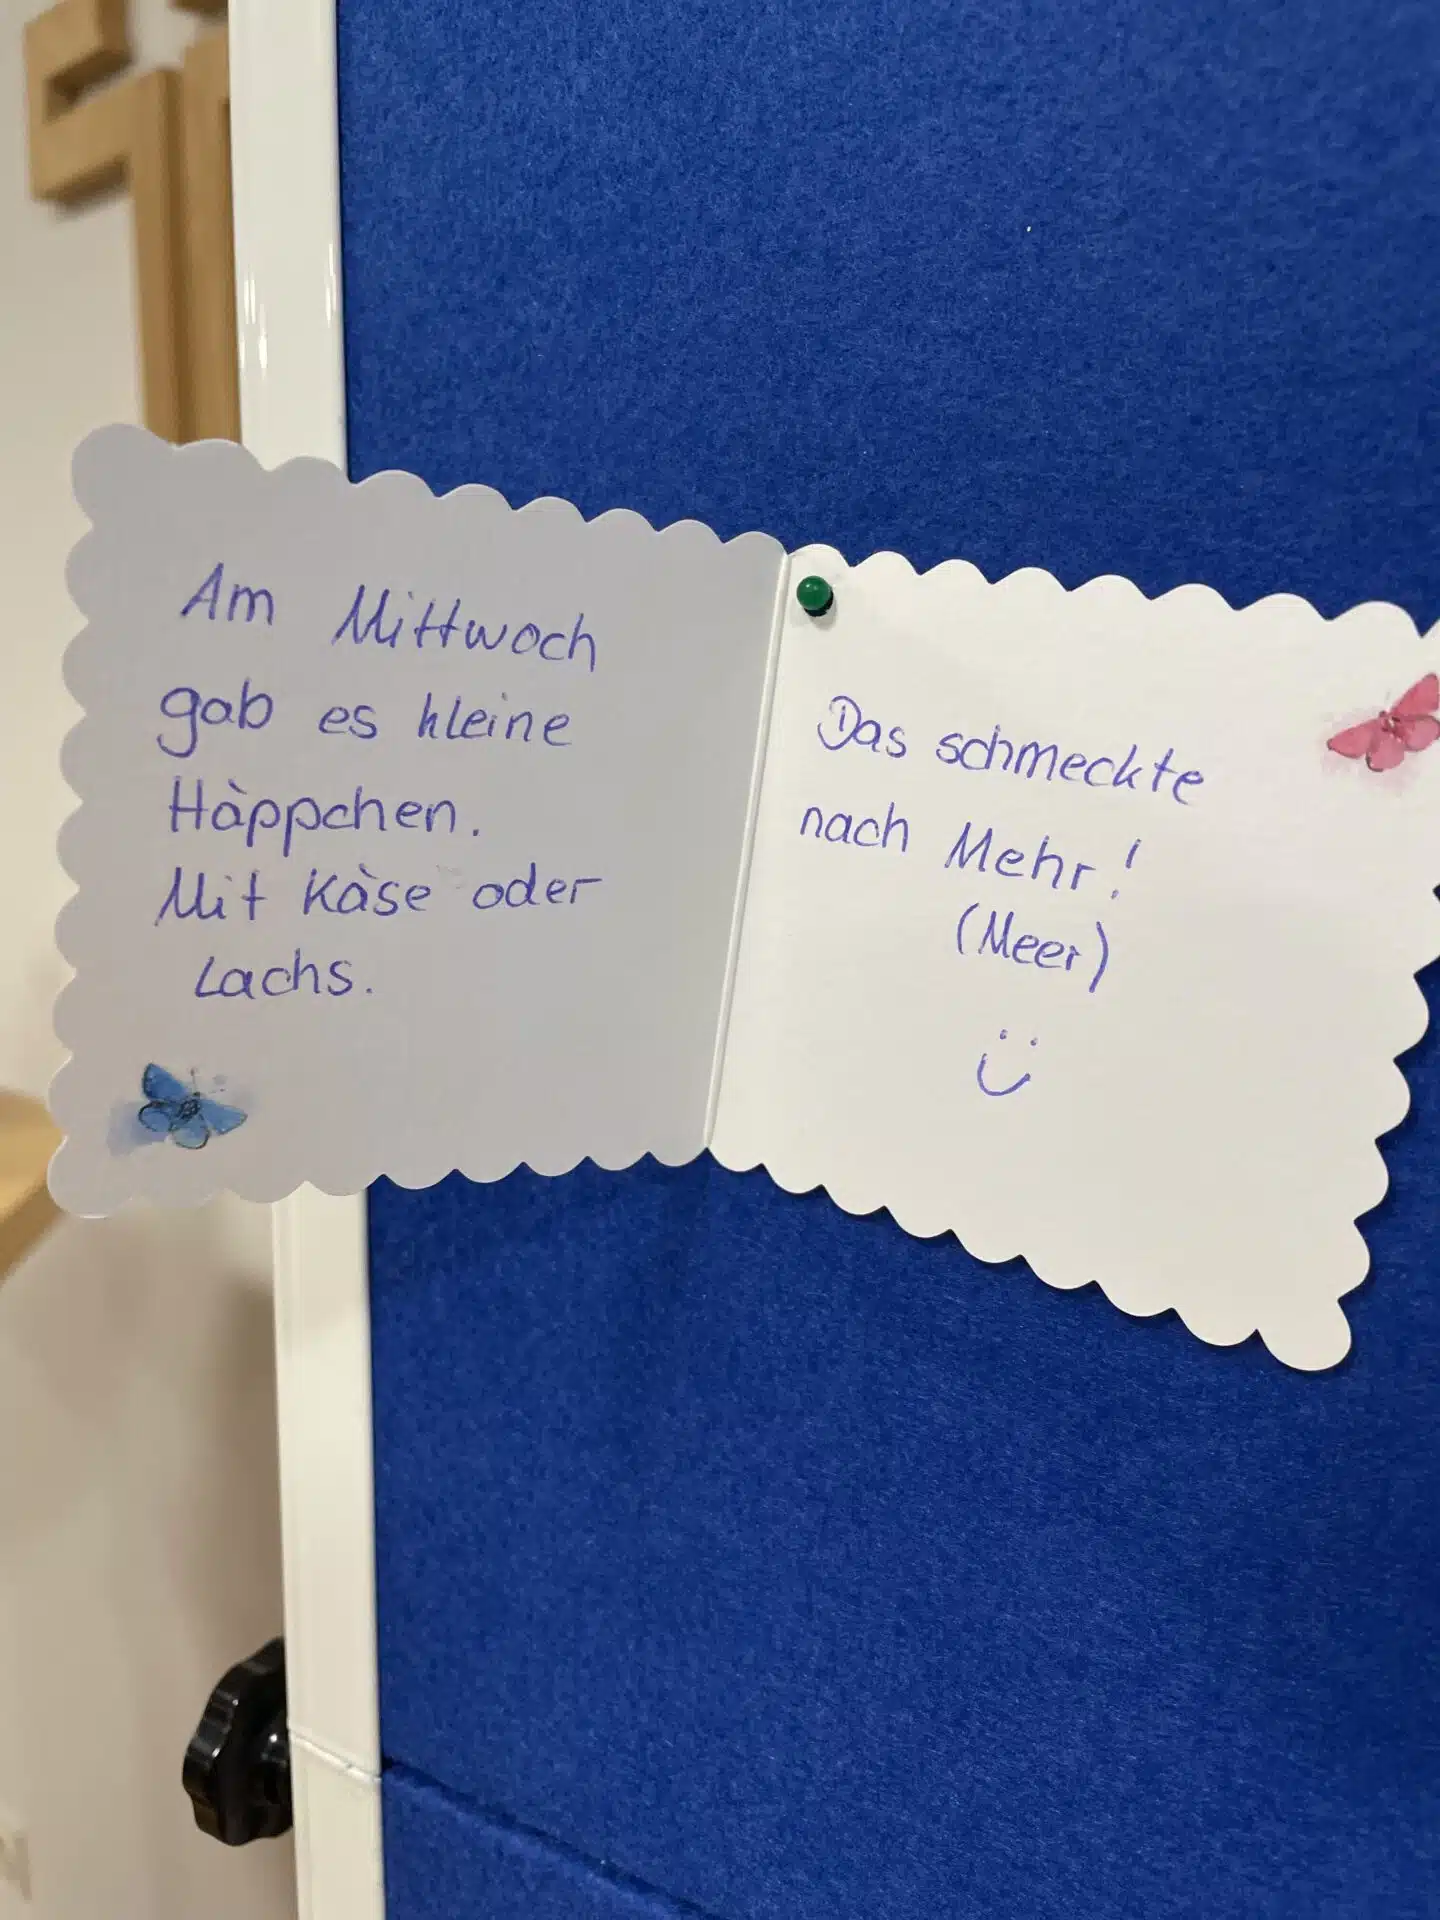 Am Mittwoch
gab es kleine
Häppchen.
Mit Käse oder
Lachs.
Das schmeckte
nach Mehr!
(Meer)